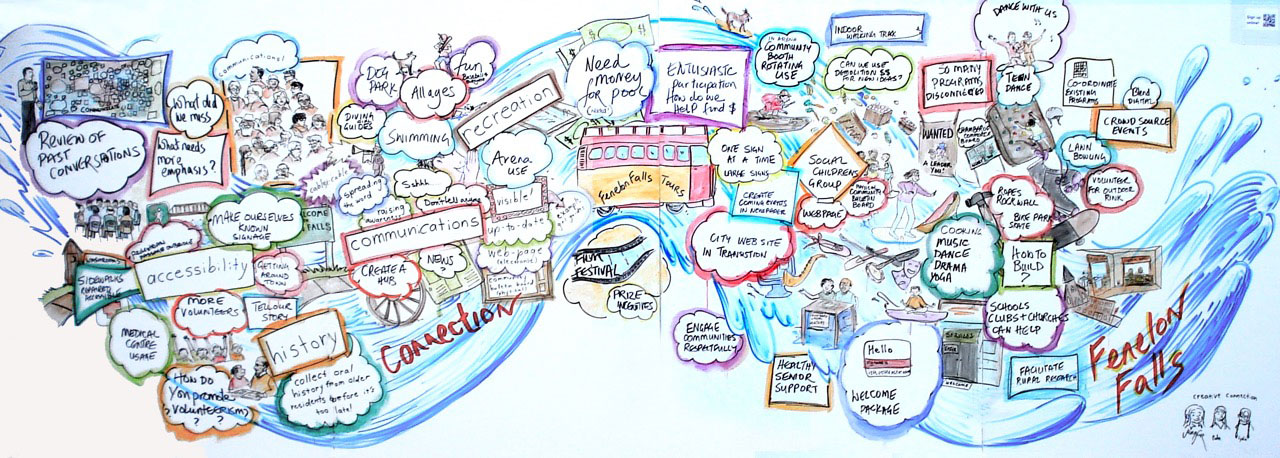 REVIEW OF
PAST
CONVERSATIONS
What did
we miss
What needs
more
emphasis?
communications!
DOG
PARK
All ages
fun
DIVING
GUIDES
SWIMMING
recreation
Arena
USE
Need
money
for pool
ENTUSIASTIC
participation
How do we
HELP fund $
COMMUNITY
BOOTH
ROTATING
USE
INDOOR
WALKING TRAX
CAN WE USE
DEMOLITION $$
FOR NEW BLDG?
SO MANY
PROGRAMS
DISCONTINUED
DANCE WITH US
TEEN
DANCE
CO-ORDINATE
EXISTING
PROGRAMS
Blend
DIGITAL
CROWD SOURCE
EVENTS
LAWN
BOWLING
VOLUNTEER
FOR OUTDOOR
RINK
WANTED
A LEADER
YOU!
ROPES
ROCK WALL
BIKE PARK
SKATE
HOW TO
BUILD
?
SCHOOLS
CLUBS + CHURCHES
CAN HELP
COOKING
MUSIC
DANCE
DRAMA
YOGA
SOCIAL
CHILDRENS
GROUP
WEB PAGE
COMMUNITY
BULLETIN
BOARD
ONE SIGN
AT A TIME
LARGE SIGNS
CREATE
COMING EVENTS
IN NEWSPAPER
CITY WEB SITE
IN TRANSITION
Fenelon Falls Tours
FILM
FESTIVAL
PRIZE
WEBSITES
ENGAGE
COMMUNITIES
RESPECTFULLY
HEALTHY
SENIOR
SUPPORT
Hello
WELCOME
PACKAGE
SERVICES
WELCOME
FACILITATE
RURAL RESEARCH
Fenelon
Falls
creative connection
cable/cable
spreading
the word
raising
awareness
Sshhh
Don't tell anyone
visible!
up-to-date
web-page
communications
NEWS
CREATE A
HUB
MAKE OURSELVES
KNOWN
SIGNAGE
accessibility
GETTING
AROUND
TOWN
SIDEWALKS
MORE
VOLUNTEERS
TELL OUR
STORY
MEDICAL
CENTRE
USAGE
history
HOW DO
YOU promote
VOLUNTEERISM?
collect oral
history from older
residents before it's
too late!
Connection